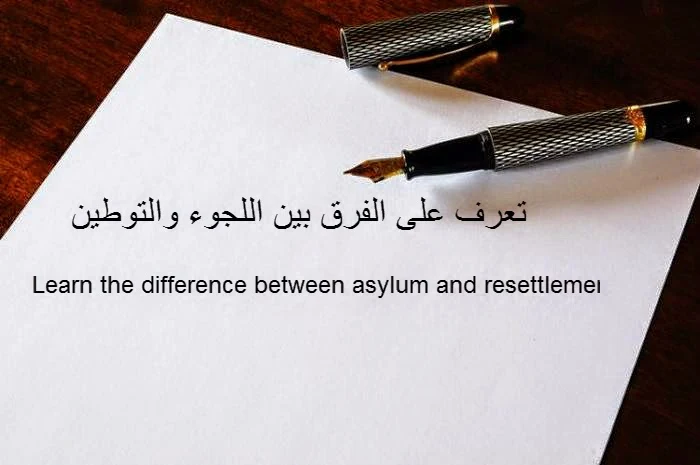 تعرف على الفرق بين اللجوء والتوطين
Learn the difference between asylum and resettlemer